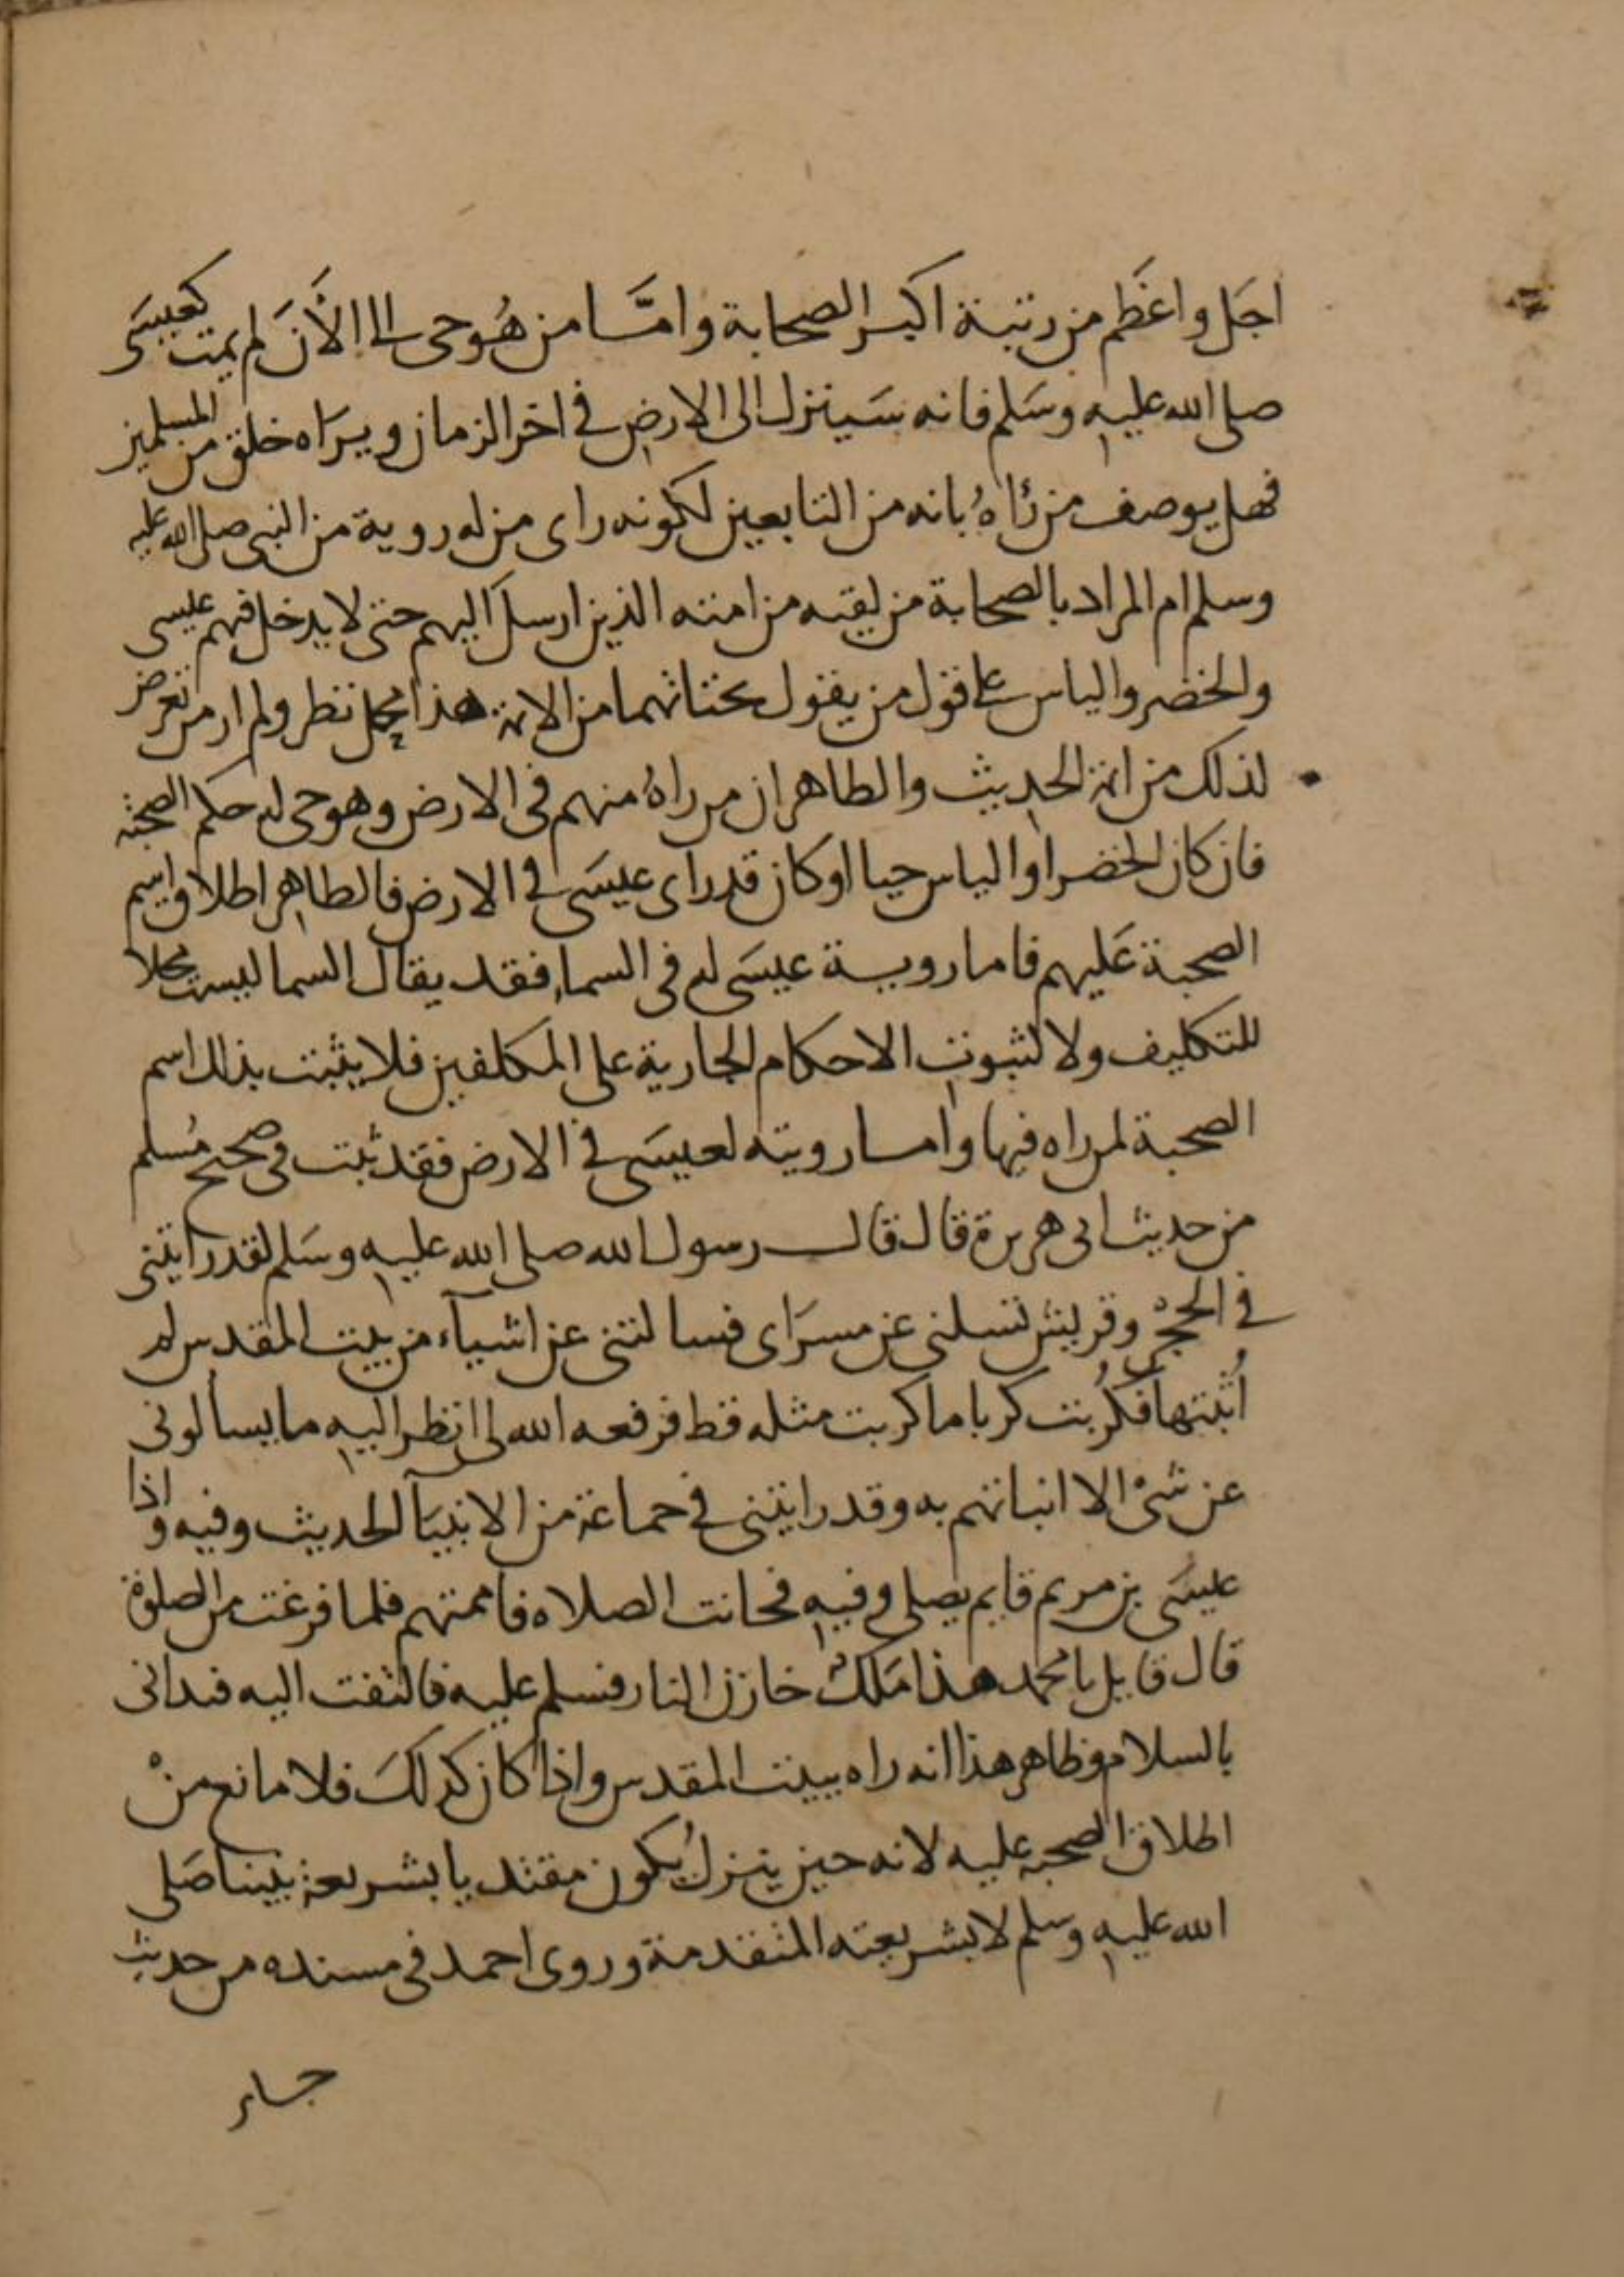 اجَل واعَظم من رتبة اكبر الصحابة وامّا من هُو حى الى الأنَ لم يمت كعيسَى
صلى الله عليه وسَلم فانه سَينزل الى الارض فى اخر الزمان ويرَاه خلق من المسلمين
فهل يوصف من رَاهُ بانه من التابعين لكونه راى من له روية من النبى صلى الله عليه
وسلم ام المراد بالصحابة من لقيه من امته الذين ارسل اليهم حتى لا يدخل فيهم عليسى
والخضر والياس على قول من يقول بحتاتهما من الانمة هذا محل نظر ولم ار من تعرض
لذلك من ائمة الحديث والظاهر ان من راهُ منهم فى الارض وهو حى له حكم الصحبة
فان كان الخضر او الياس حيا او كان قد راى عيسَى فى الارض فالظاهر اطلاق اسم
الصحبة عَليهم فاما روية عيسَى له فى السماء فقد يقال السما ليست محلا
للتكليف ولا لثبوت الاحكام الجارية على المكلفين فلا يثبت بذلك اسم
الصحبة لمن راه فيها واما رويته لعيسَى فى الارض فقد ثبت فى صحيح مُسلم
من حديث ابى هريرة قال قال رسول الله صلى الله عليه وسَلم لقد رايتنى
فى الحِجْرِ وقريش تسلنى عن مسرَاى فسالتنى عن اشيآء من بيت المقدس لم
اُثبتها فكُربت كربا ما كربت مثله قط فرفعه الله لى انظر اليه ما يسألونى
عن شىْ الا انباتهم به وقد رايتنى فى جماعة من الانبيَآ الحديث وفيه واذا
عليسَى بن مريم قايم يصلى وفيه فحانت الصلاه فاممتهم فلما فرغت من الصلوة
قال قايل يا محمد هذا مَلكٌ خازن النار فسلم عليه فالتفت اليه فبدانى
بالسلام وظاهر هذا انه راه ببيت المقدس واذا كان كذلكَ فلا مانع منْ
اطلاق الصحبه عليه لانه حين ينزلُ يكون مقتديا بشريعة نبينا صَلى
الله عليه وسلم لا بشريعته المتقدمة وروى احمد فى مسنده من حديث
جابر